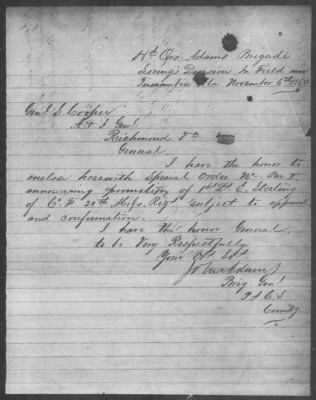 Hd Qrs. Adams Brigade
Loring's Division In Field near
Tuscumbia Ala November 6th 1864
Genl S. Cooper
A & I Genl
Richmond Va
General
I have the honor to
enclose herewith Special Order No.
announcing promotion of 1st Lt E. Sterling
of Co F 20th Miss Regt subject to approval
and confirmation.
I have the honor General,
to be Very Respectfully
Your Obt Svt
John Adams
Brig Genl
P A C S
Comdg